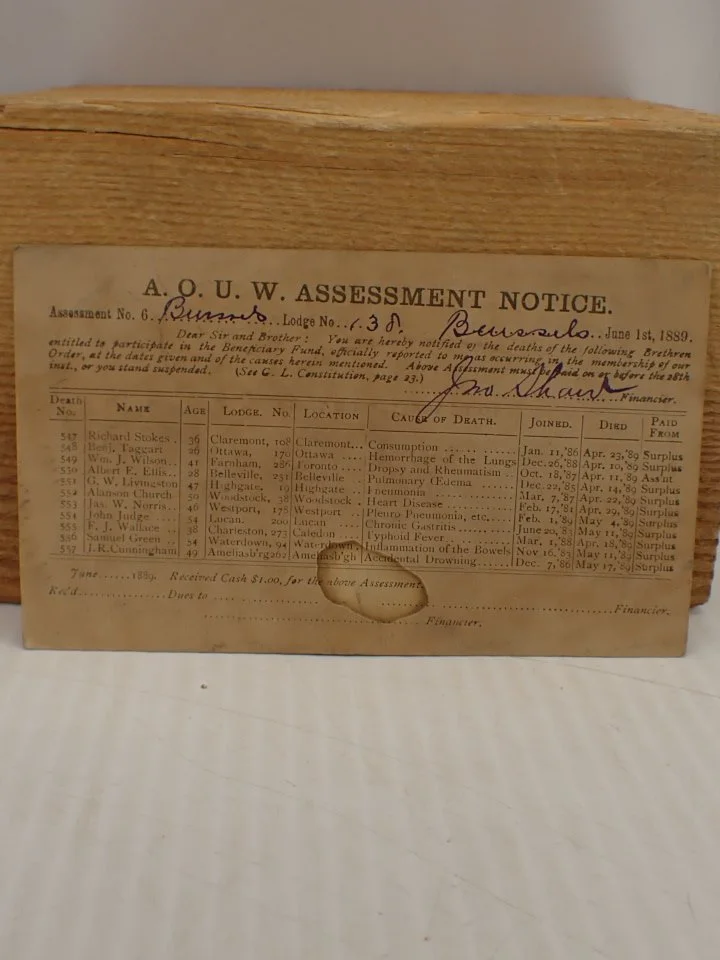 A. O. U. W. ASSESSMENT NOTICE.
Assessment No. 6. Brussels Lodge No. 138. Brussels.. June 1st, 1889.
Dear Sir and Brother: You are hereby notified of the deaths of the following Brethren
entitled to participate in the Beneficiary Fund, officially reported to me as occurring in the membership of our
Order, at the dates given and of the causes herein mentioned. Above Assessment must be paid on or before the 28th
inst., or you stand suspended. (See G. L. Constitution, page 23.)
Jno Shaw Financier.
Death No. NAME AGE LODGE. No. LOCATION CAUSE OF DEATH. JOINED. DIED PAID FROM
547 Richard Stokes . 36 Claremont, 108 Claremont... Consumption ...... Jan. 11,'86 Apr. 23,'89 Surplus
548 Benj. Taggart 26 Ottawa, 170 Ottawa .... Hemorrhage of the Lungs Dec. 26,'88 Apr. 10,'89 Surplus
549 Wm. J. Wilson.. 41 Farnham, 286 Toronto .... Dropsy and Rheumatism .. Oct. 18,'87 Apr. 11,'89 Ass'nt
550 Albert E. Ellis.. 28 Belleville, 251 Belleville Pulmonary Œdema .... Dec. 22,'85 Apr. 14,'89 Surplus
551 G. W. Livingston 47 Highgate, 19 Highgate .. Pneumonia ...... Mar. 7,'87 Apr. 22,'89 Surplus
552 Alanson Church 50 Woodstock, 38 Woodstock .. Heart Disease .... Feb. 17,'81 Apr. 29,'89 Surplus
553 Jas. W. Norris.. 46 Westport, 178 Westport .. Pleuro Pneumonia, etc.... Feb. 1,'89 May 4,'89 Surplus
554 John Judge .... 54 Lucan, 200 Lucan .... Chronic Gastritis .... June 20,'83 May 11,'89 Surplus
555 F. J. Wallace .. 38 Charleston, 273 Caledon .. Typhoid Fever .... Mar. 1,'88 Apr. 18,'89 Surplus
556 Samuel Green .. 54 Waterdown, 94 Waterdown.. Inflammation of the Bowels Nov 16,'83 May 11,'89 Surplus
557 J.R.Cunningham 49 Ameliasb'rg262 Ameliasb'gh Accidental Drowning .. Dec. 7,'86 May 17,'89 Surplus
June......1889. Received Cash $1.00, for the above Assessment.
Rec'd.............. Dues to .................... Financier.
.................... Financier.